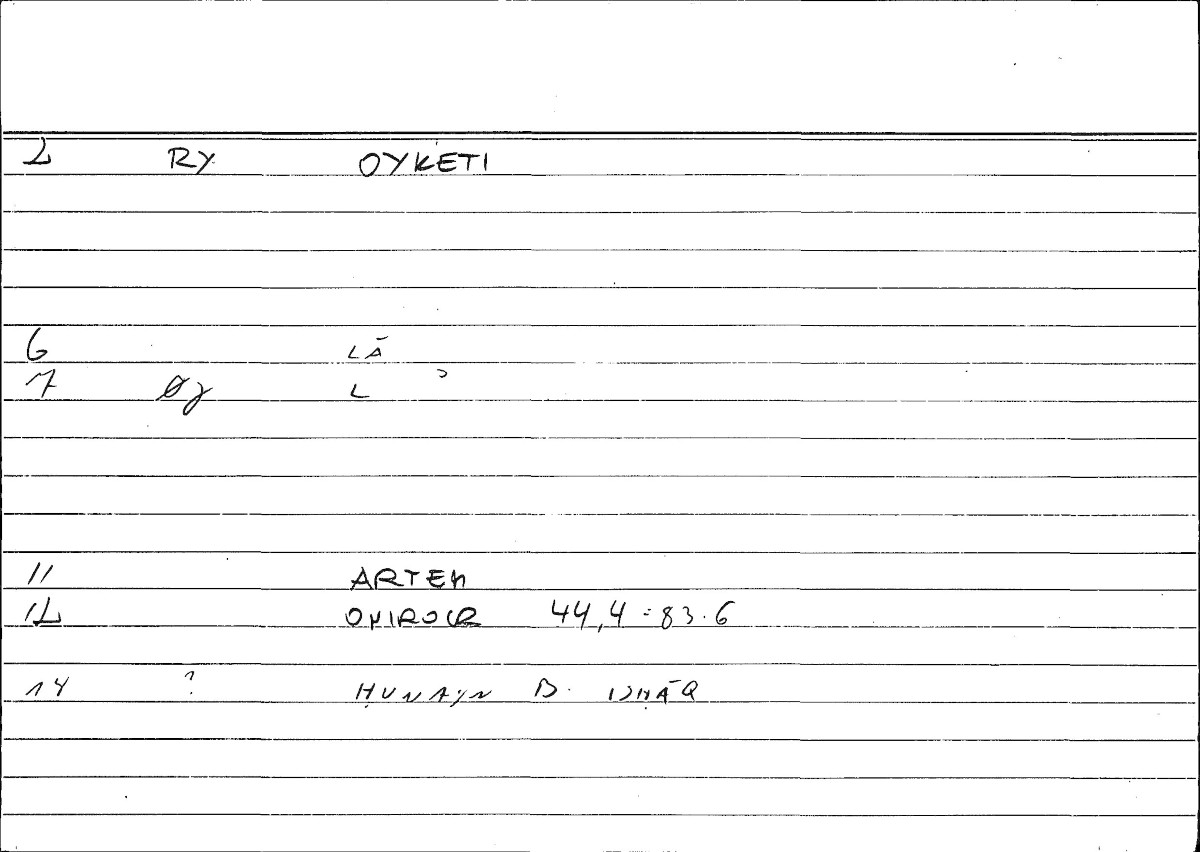 2 RY OYKETI
6 LĀ
7 Øy L ʾ
11 ARTEM
12 ONIROCR 44,4 = 83.6
14 ? ḤUNAYN B. ISḤĀQ